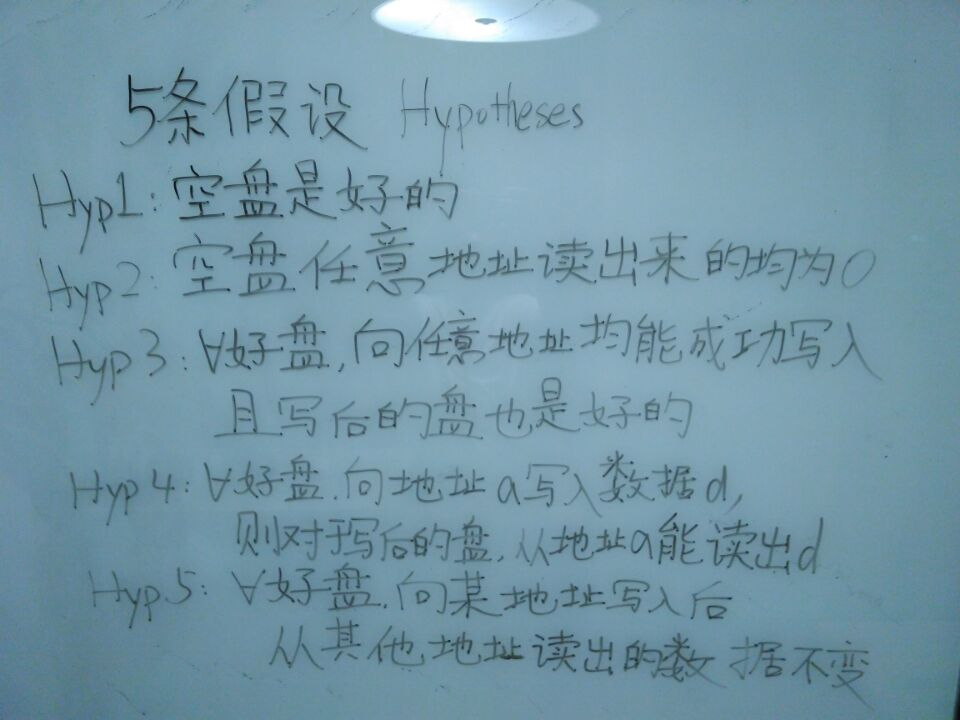 5条假设 Hypotheses
Hyp1: 空盘是好的
Hyp2: 空盘任意地址读出来的均为0
Hyp3: ∀好盘,向任意地址均能成功写入
且写后的盘也是好的
Hyp4: ∀好盘,向地址a写入数据d,
则对于写后的盘,从地址a能读出d
Hyp5: ∀好盘,向某地址写入后
从其他地址读出的数据不变